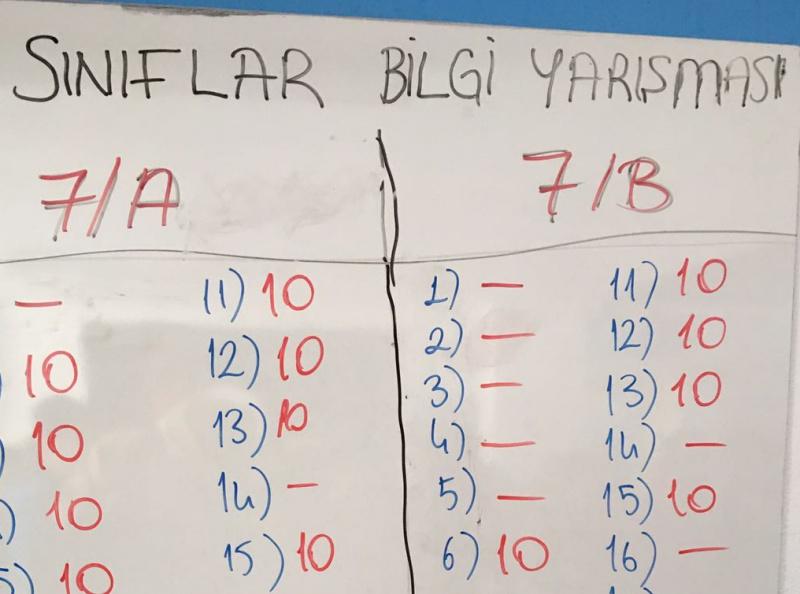 SINIFLAR BİLGİ YARIŞMASI
7/A
7/B
—
10
10
10
5) 10
11) 10
12) 10
13) 10
14) —
15) 10
1) —
2) —
3) —
4) —
5) —
6) 10
11) 10
12) 10
13) 10
14) —
15) 10
16) —